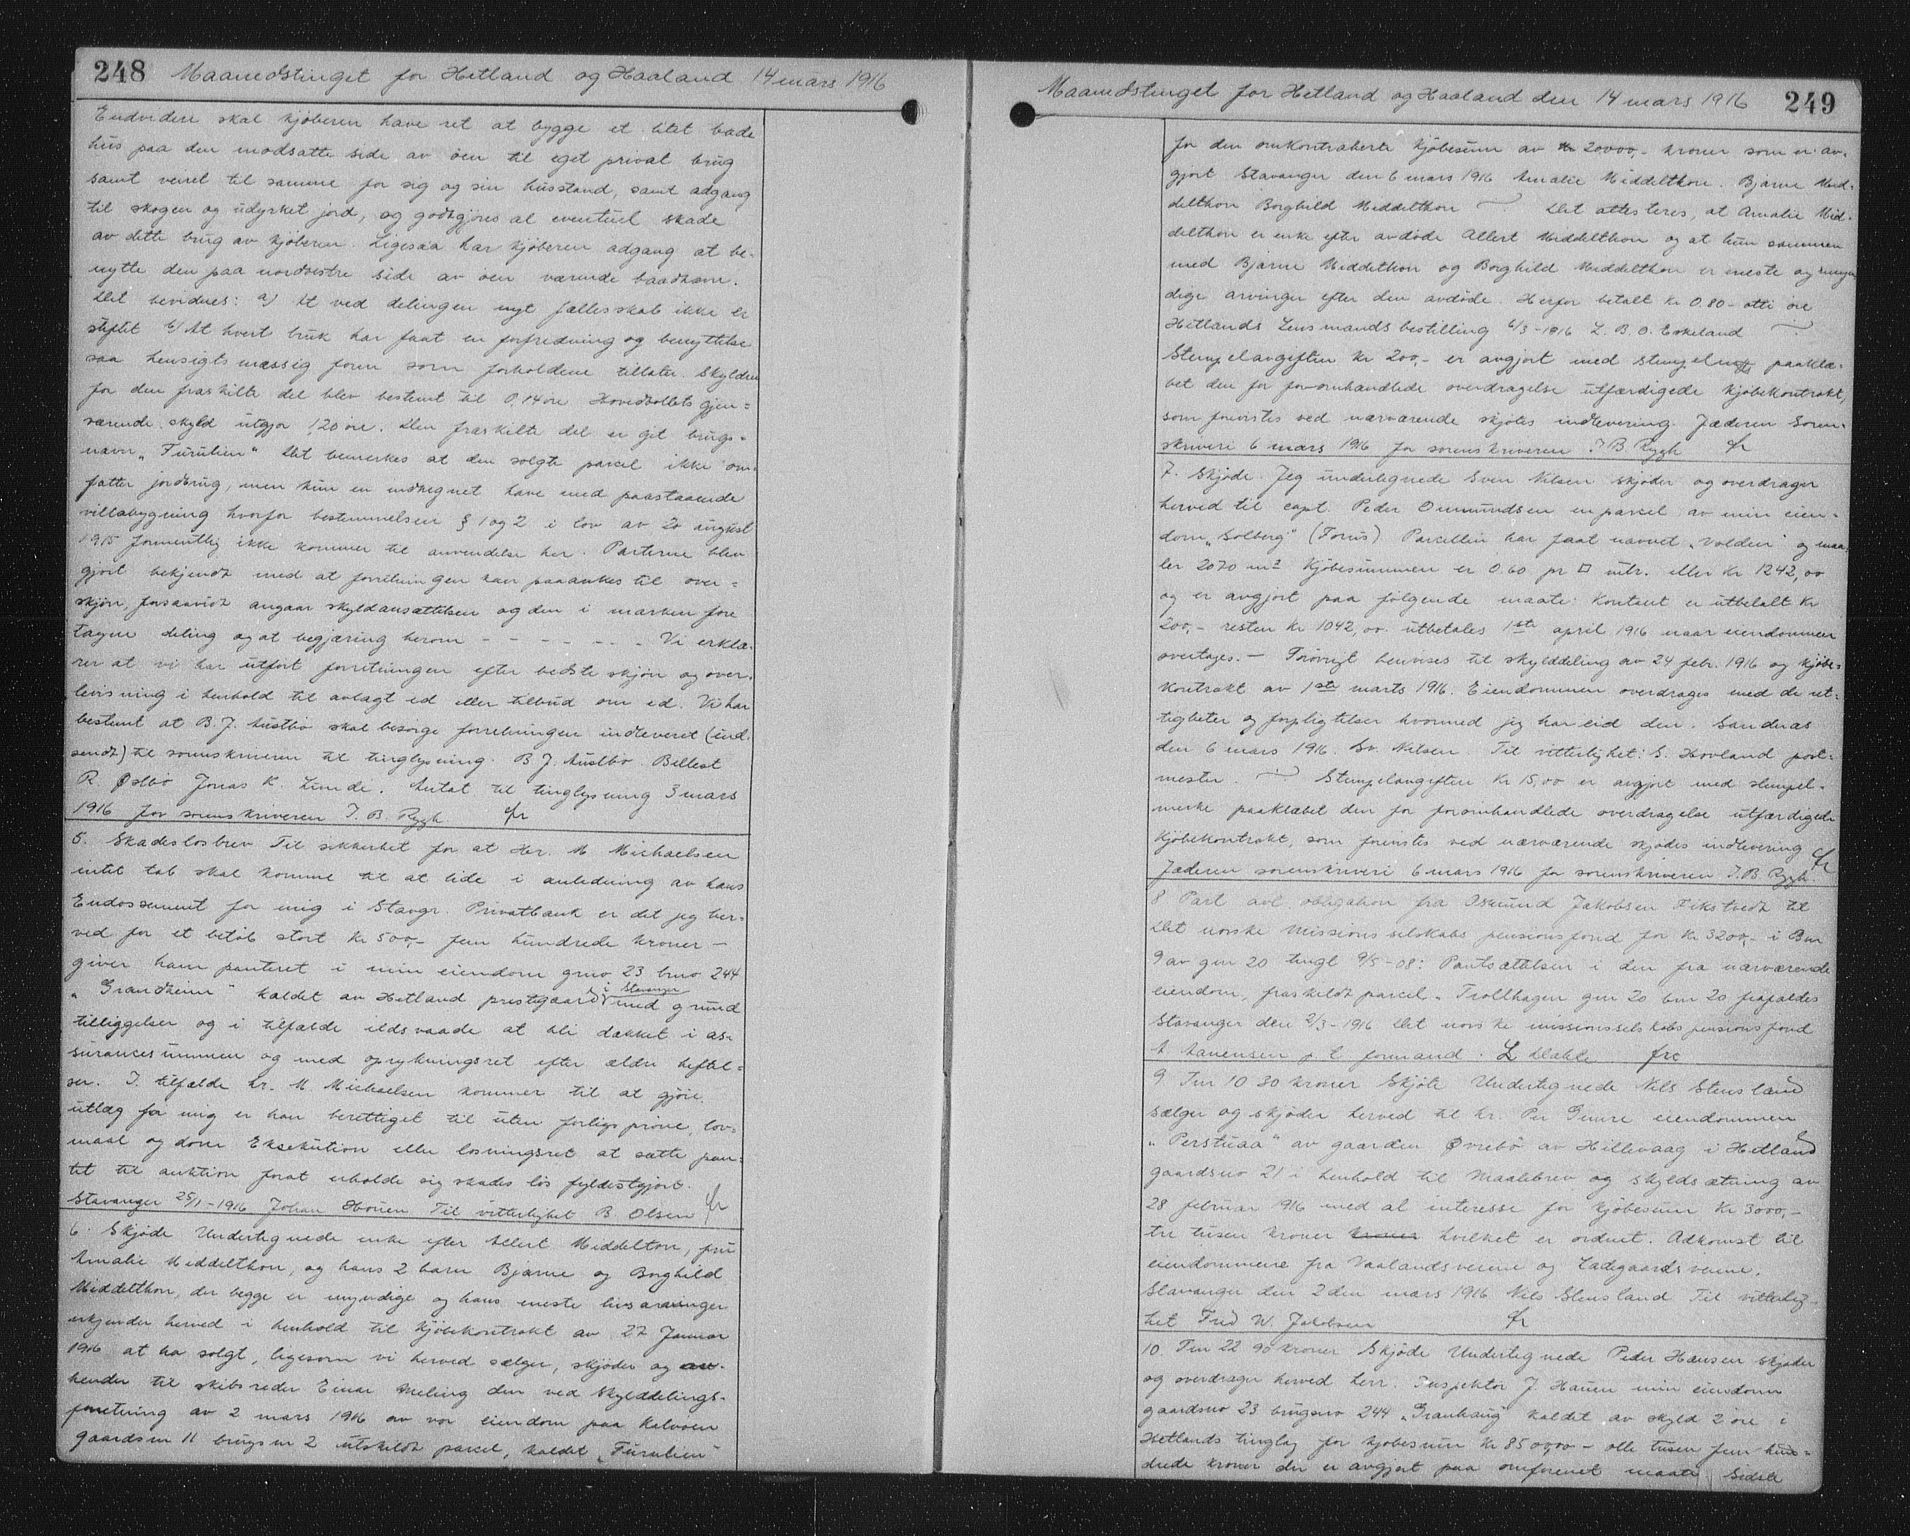 248 Maanedstinget for Hetland og Haaland 14 mars 1916
Endvidere skal kjøberen have ret at bygge et litet bade
hus paa den modsatte side av øen til eget privat brug
samt veiret til samme for sig og sin husstand, samt adgang
til skogen og udyrket jord, og godtgjøres al eventuel skade
av dette brug av kjøberen. Ligesaa har kjøberen adgang at be-
nytte den paa nordvestre side av øen værende baadhavn.
Det bevidnes: a) At ved delingen nyt fællesskab ikke er
stiftet b) At hvert bruk har faat en forfredning og benyttelse
saa hensigtsmæssig form som forholdene tillater. Skylden
for den fraskilte del blev bestemt til 0,14 øre Hovedbøllets gjen-
værende skyld utgjør 1,20 øre. Den fraskilte del er git brugs-
navn „Furulien“ Det bemerkes at den solgte parcel ikke om-
fatter jordbrug, men kun en indhegnet have med paastaaende
villabygning hvorfor bestemmelsen § 1 og 2 i lov av 20 august
1915 formentlig ikke kommer til anvendelse her. Parterne blev
gjort bekjendt med at forretningen kan paaankes til over-
skjøn, forsaavidt angaar skyldansættelsen og den i marken fore
tagne deling og at begjæring herom - - - - - - - Vi erklæ-
rer at vi har utført forretningen efter bedste skjøn og over-
bevisning i henhold til avlagt ed eller tilbud om ed. Vi har
bestemt at B. J. Austbø skal besørge forretningen indleveret (ind-
sendt) til sorenskriveren til tinglysning. B J. Austbø Bellest
R. Østbø Jonas K. Lunde. Antat til tinglysning 3 mars
1916 for sorenskriveren I. B. Rygh fr
5. Skadesløsbrev Til sikkerhet for at Hr. M Michaelsen
intet tab skal komme til at lide i anledning av hans
Endossement for mig i Stavgr. Privatbank er det jeg her-
ved for et beløb stort Kr 500,- fem hundrede kroner -
giver ham panteret i min eiendom gnr 23 bno 244
„Grandheim“ kaldet av Hetland prestegaard i Stavanger med grund
tilliggelser og i tilfælde ildsvaade at bli dækket i as-
surancesummen og med oprykningsret efter ældre heftel-
ser. I tilfælde hr. M Michaelsen kommer til at gjøre
utlæg for mig er han berettiget til uten forligsprøve, lov-
maal og dom Eksekution eller løsningsret at sætte pan-
tet til auktion forat erholde sig skadesløs fyldestgjort.
Stavanger 25/1-1916 Johan Houen Til vitterlighet B. Olsen fr
6. Skjøde Undertegnede enke efter Allert Middelton, fru
Amalie Middelthon, og hans 2 barn Bjarne og Borghild
Middelthon, der begge er myndige og hans eneste livsarvinger
erkjender herved i henhold til kjøbekontrakt av 27 Januar
1916 at ha solgt, ligesom vi herved sælger, skjøder og av-
hender til skibsreder Einar Meling den ved skylddelings-
forretning av 2 mars 1916 av vor eiendom paa Kalvøen
gaardsnr 11 brugsnr 2 utskildt parcel, kaldet „Furulien“
Maanedstinget for Hetland og Haaland den 14 mars 1916 249
for den omkontraherte kjøbesum av 20000,- kroner som er av-
gjort Stavanger den 6 mars 1916 Amalie Middelthon. Bjarne Mid-
delthon Borghild Middelthon Det attesteres, at Amalie Mid-
delthon er enke efter avdøde Allert Middelthon og at hun sammen
med Bjarne Middelthon og Borghild Middelthon er eneste og myn
dige arvinger efter den avdøde. Herfor betalt kr 0,80 - otti øre
Hetlands Lensmandsbestilling 6/3-1916 L. B. O. Eskeland
Stempelavgiften kr 200,- er avgjort med stempelm paaklæ-
bet den for foromhandlede overdragelse utfærdigede kjøbekontrakt,
som forevistes ved nærværende skjøtes indlevering. Jæderen Soren-
skriveri 6 mars 1916 for sorenskriveren I B Rygh fr
7. Skjøde. Jeg undertegnede Sven Nilsen skjøder og overdrager
herved til capt. Peder Ommundsen en parcel av min eien-
dom „Solberg“ (Forus) Parcellen har faat navnet „Volden“ og maa-
ler 2070 m² Kjøbesummen er 0.60 pr □ mtr. eller kr 1242,00
og er avgjort paa følgende maate: Kontant er utbetalt kr
200,- resten kr 1042,00. utbetales 1ste april 1916 naar eiendommen
overtages. - Forøvrigt henvises til skylddeling av 24 febr. 1916 og kjøbe-
kontrakt av 1ste marts 1916. Eiendommen overdrages med de ret-
tigheter og forpligtelser hvormed jeg har eid den. Sandnes
den 6 mars 1916. Sv. Nilsen. Til vitterlighet: S. Hovland post-
mester. Stempelavgiften kr 15,00 er avgjort med stempel-
merke paaklæbet den for foromhandlede overdragelse utfærdigede
kjøbekontrakt, som forevistes ved nærværende skjødes indlevering
Jæderen sorenskriveri 6 mars 1916 for sorenskriveren I. B Rygh. fr
8 Part avl. obligation fra Osmund Jakobsen Fikstvedt til
Det norske Missionsselskabs pensionsfond for Kr 3200,- i Bnr
9 av gnr 20 tingl 9/5-08: Pantsættelsen i den fra nærværende
eiendom, fraskildt parcel „Trollhagen gnr 20 bnr 20 frafaldes
Stavanger den 2/3-1916 Det norske missionsselskabs pensionsfond
A Aanensen p t formand. L Dahle fr
9 Tm 10 30 kroner Skjøte Undertegnede Nils Stensland
sælger og skjøder herved til hr. Per Gimre eiendommen
„Perstuaa“ av gaarden Øvrebø av Hillevaag i Hetland
gaardsno 21 i henhold til Maalebrev og skyldsætning av
28 februar 1916 med al interesse for kjøbesum Kr 3000,-
tre tusen kroner kroner hvilket er ordnet. Adkomst til
eiendommene fra Vaalandsveiene og Ladegaardsveiene.
Stavanger den 2 den mars 1916 Nils Stensland Til vitterlig-
het Fred W. Jacobsen fr
10. Tm 22 90 kroner Skjøde Undertegnede Peder Hansen skjøder
og overdrager herved herr. Inspektør J. Hauen min eiendom
gaardsno 23 brugsno 244 „Granhaug“ kaldet av skyld 2 øre i
Hetlands tinglag for kjøbesum Kr 8500,00 - otte tusen fem hun-
drede kroner der er avgjort paa omforenet maate. Sidste